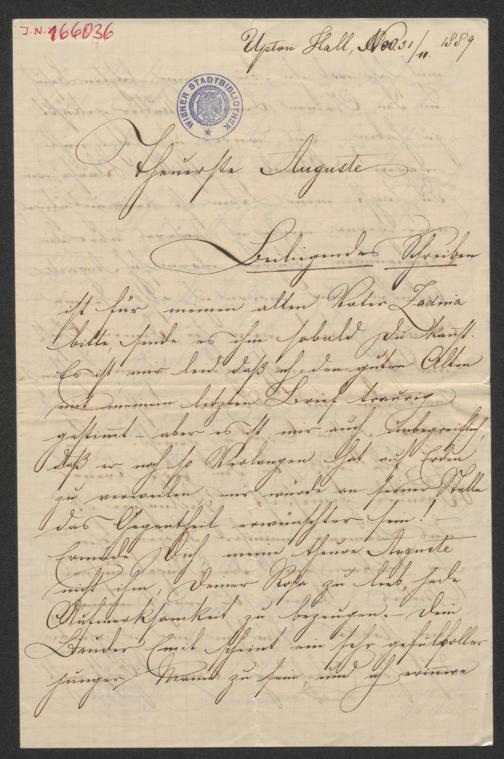 J.N. 166036
Upton Hall, Nov. 31/11 1889
WIENER STADTBIBLIOTHEK
Theuerste Auguste
Beiliegendes Schreiben
ist für meinen alten Vater Zadina
bitte sende es ihm sobald Du kannst.
Es ist mir leid daß ich den guten Alten
mit meinem letzten Brief traurig
gestimmt aber es ist mir auch unbegreiflich,
daß er noch so Verlangen hat auf Erden
zu verweilen mir würde an seiner Stelle
das Gegentheil erwünschter sein!
Ermüde Dich meine theure Auguste
nicht ihm, Deiner Rosa zu lieb, jede
Aufmerksamkeit zu bezeugen. – Dein
Bruder Emil scheint ein sehr gefühlvoller
junger Mann zu sein, und ich erinnere